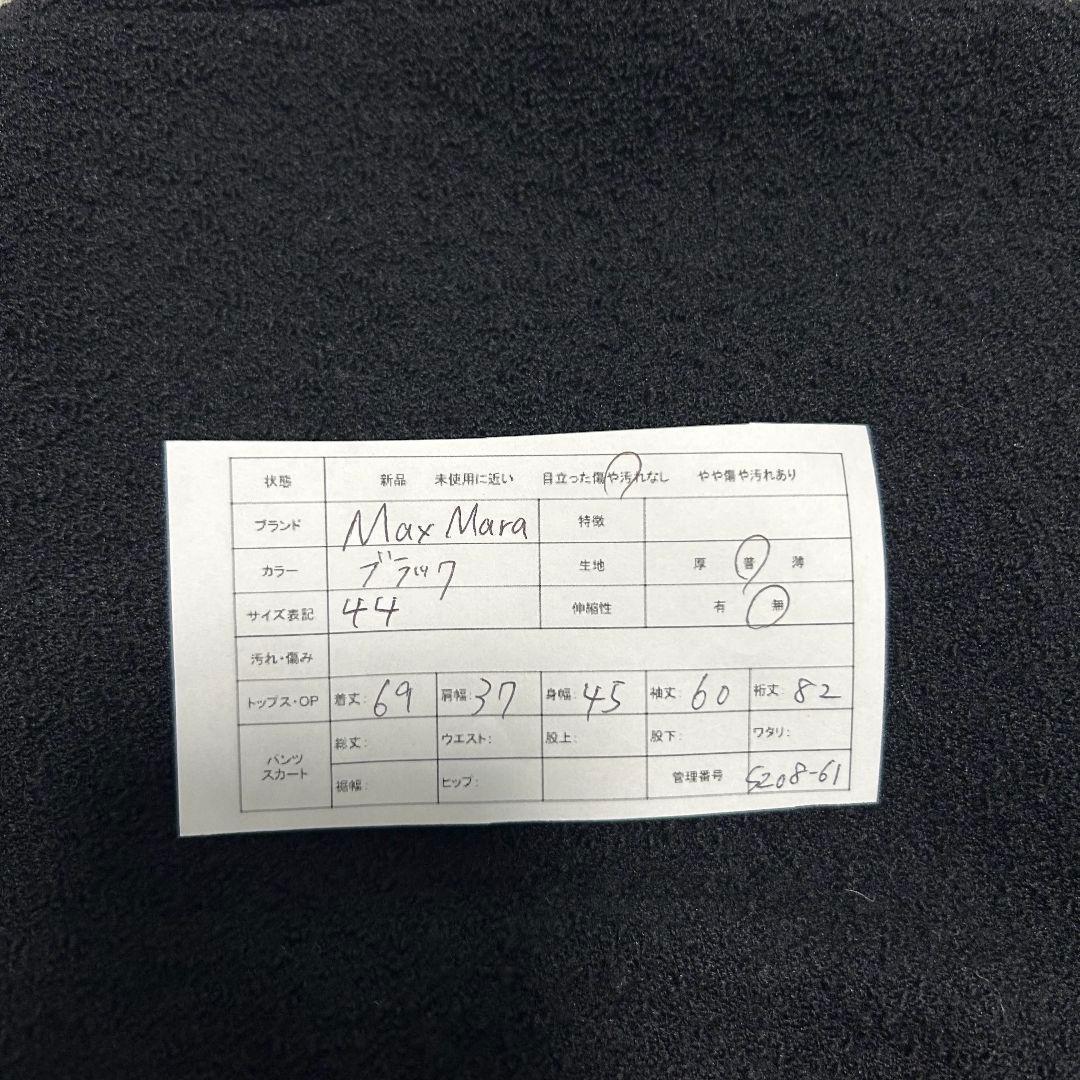 状態 新品 未使用に近い 目立った傷や汚れなし やや傷や汚れあり
ブランド Max Mara 特徴
カラー ブラック 生地 厚 普 薄
サイズ表記 44 伸縮性 有 無
汚れ・傷み
トップス・OP 着丈: 69 肩幅: 37 身幅: 45 袖丈: 60 裄丈: 82
パンツ スカート 総丈: ウエスト: 股上: 股下: ワタリ:
裾幅: ヒップ: 管理番号 S208-61